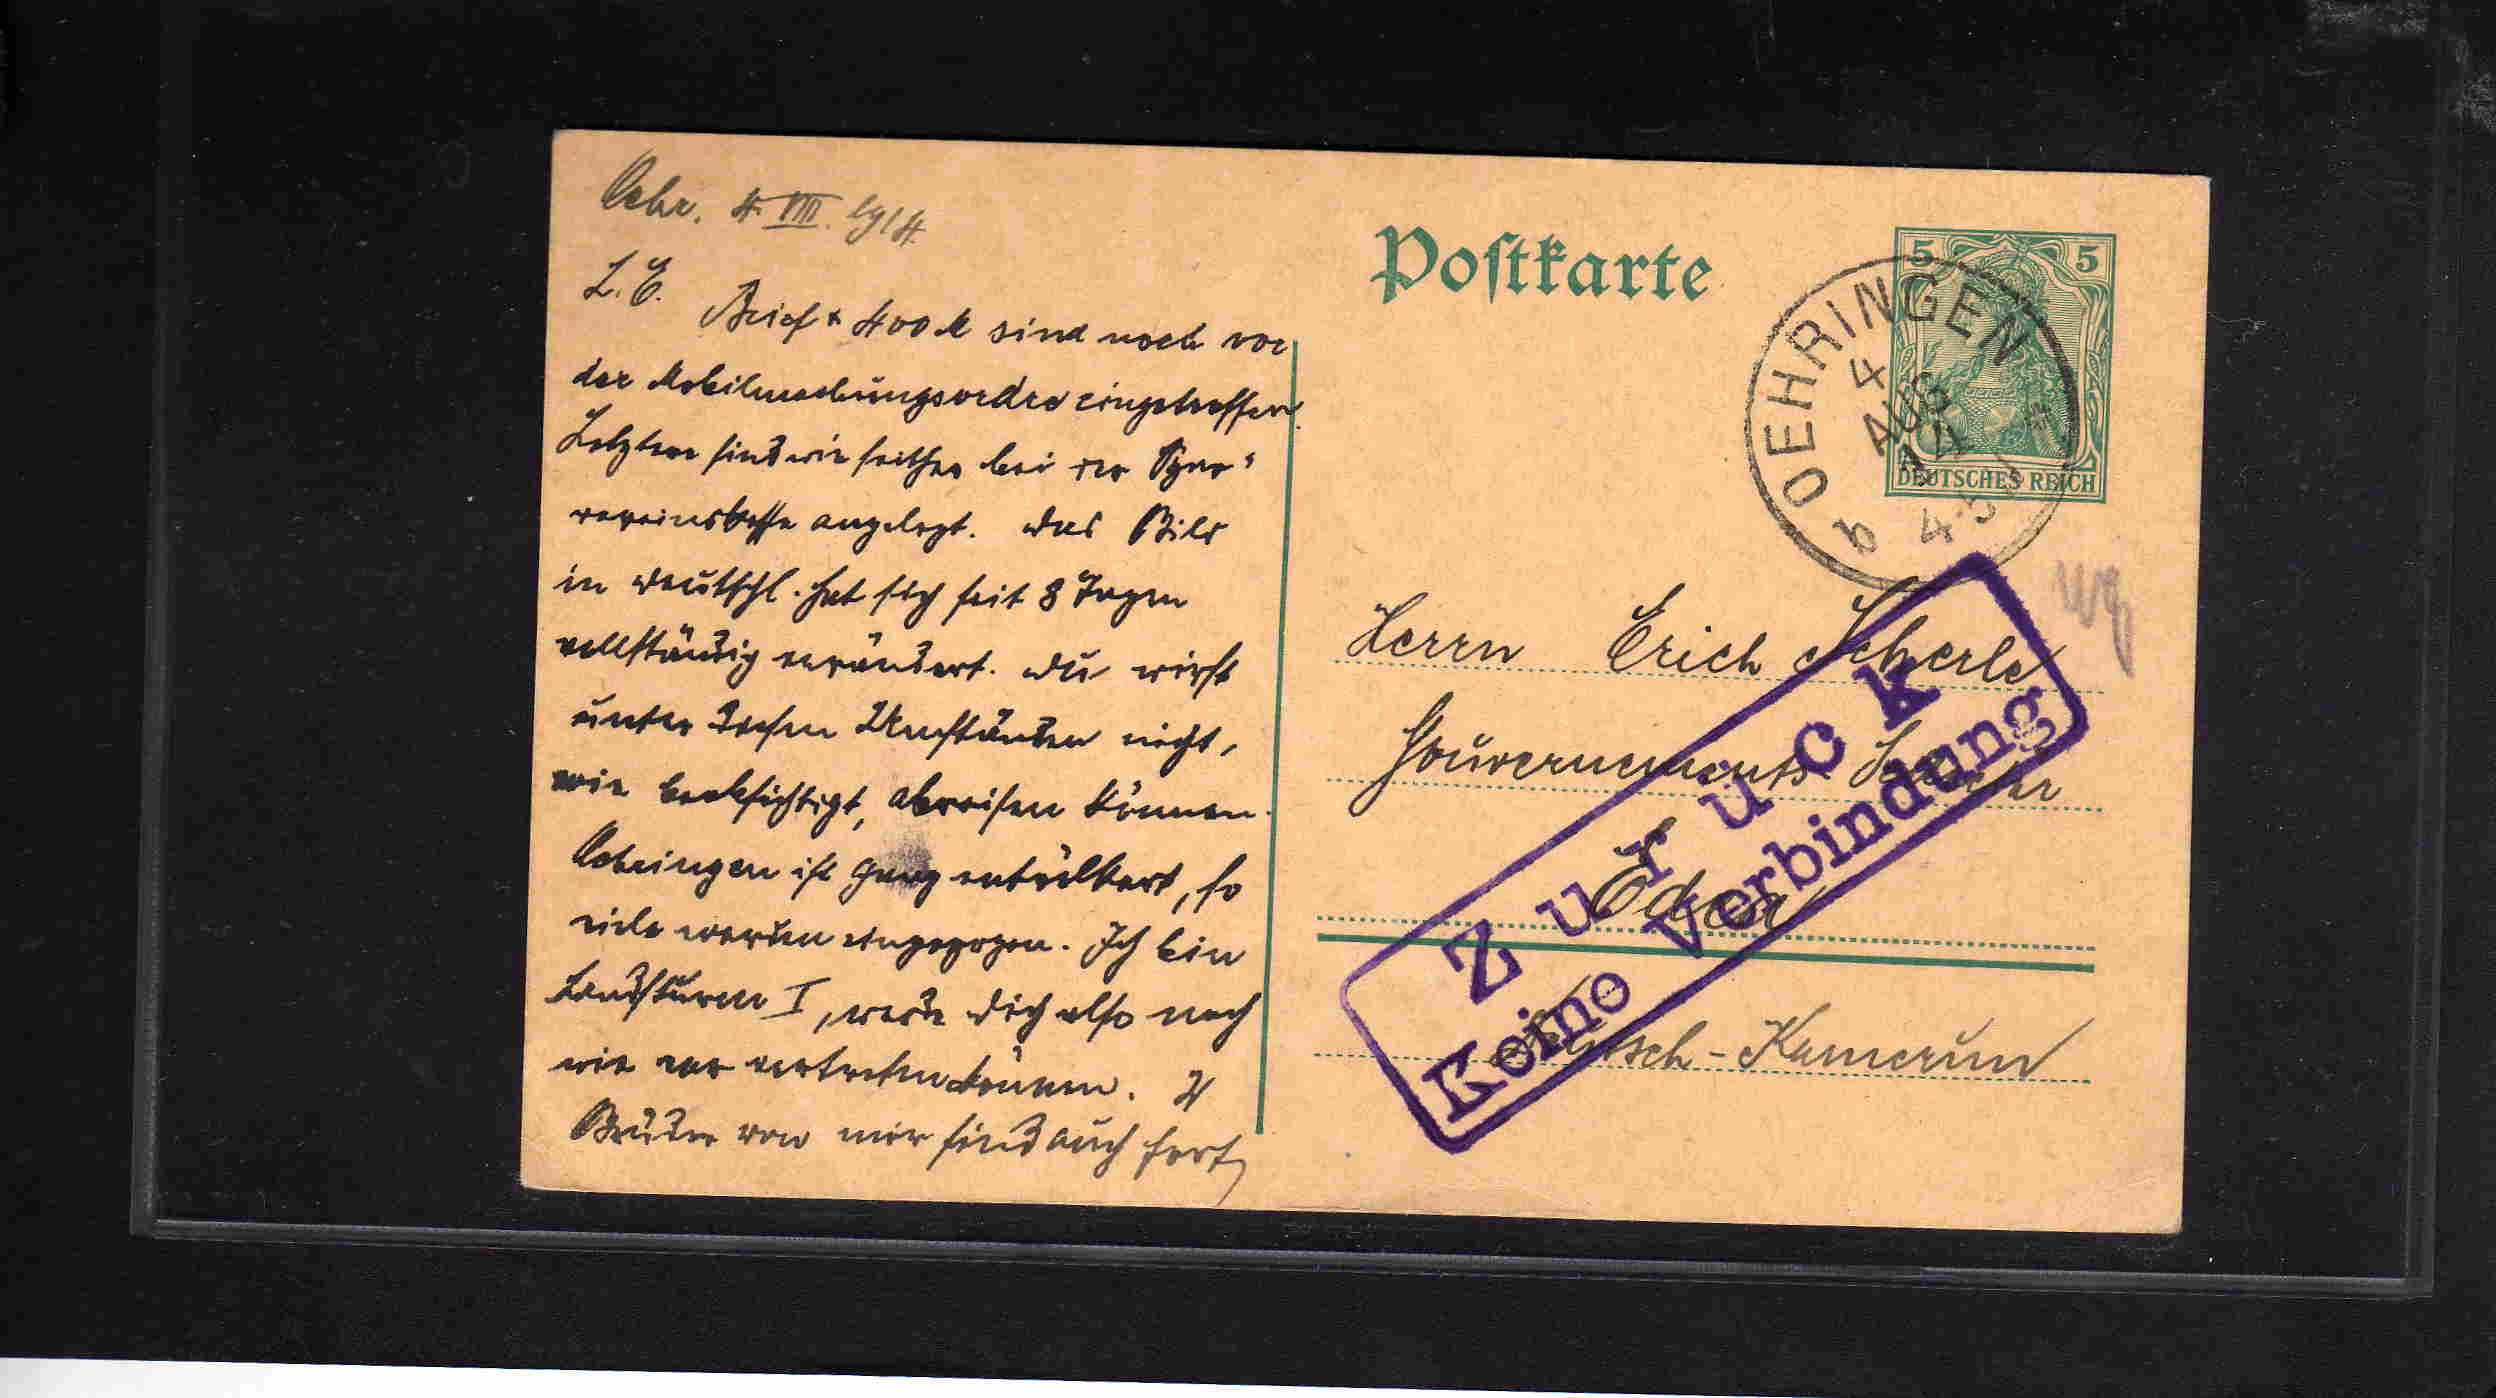 Oehr. 4. VIII. 1914.
L. E.
Brief & 400 M sind noch vor
der Mobilmachungsordre eingetroffen.
Letztere sind wie seither bei der Spar-
vereinskasse angelegt. Das Bild
in Deutschl. hat sich seit 8 Tagen
vollständig verändert. Du wirst
unter diesen Umständen nicht,
wie beabsichtigt, abreisen können.
Oehringen ist ganz entvölkert, so
viele werden eingezogen. Ich bin
Landsturm I, werde Dich also nach
wie vor vertreten können. 2
Brüder von mir sind auch fort,
Postkarte
5 5
DEUTSCHES REICH
OEHRINGEN
4
AUG
14
4-5
b
Herrn Erich Scherle
Gouvernements
Edea
Deutsch-Kamerun
Zurück
Keine Verbindung